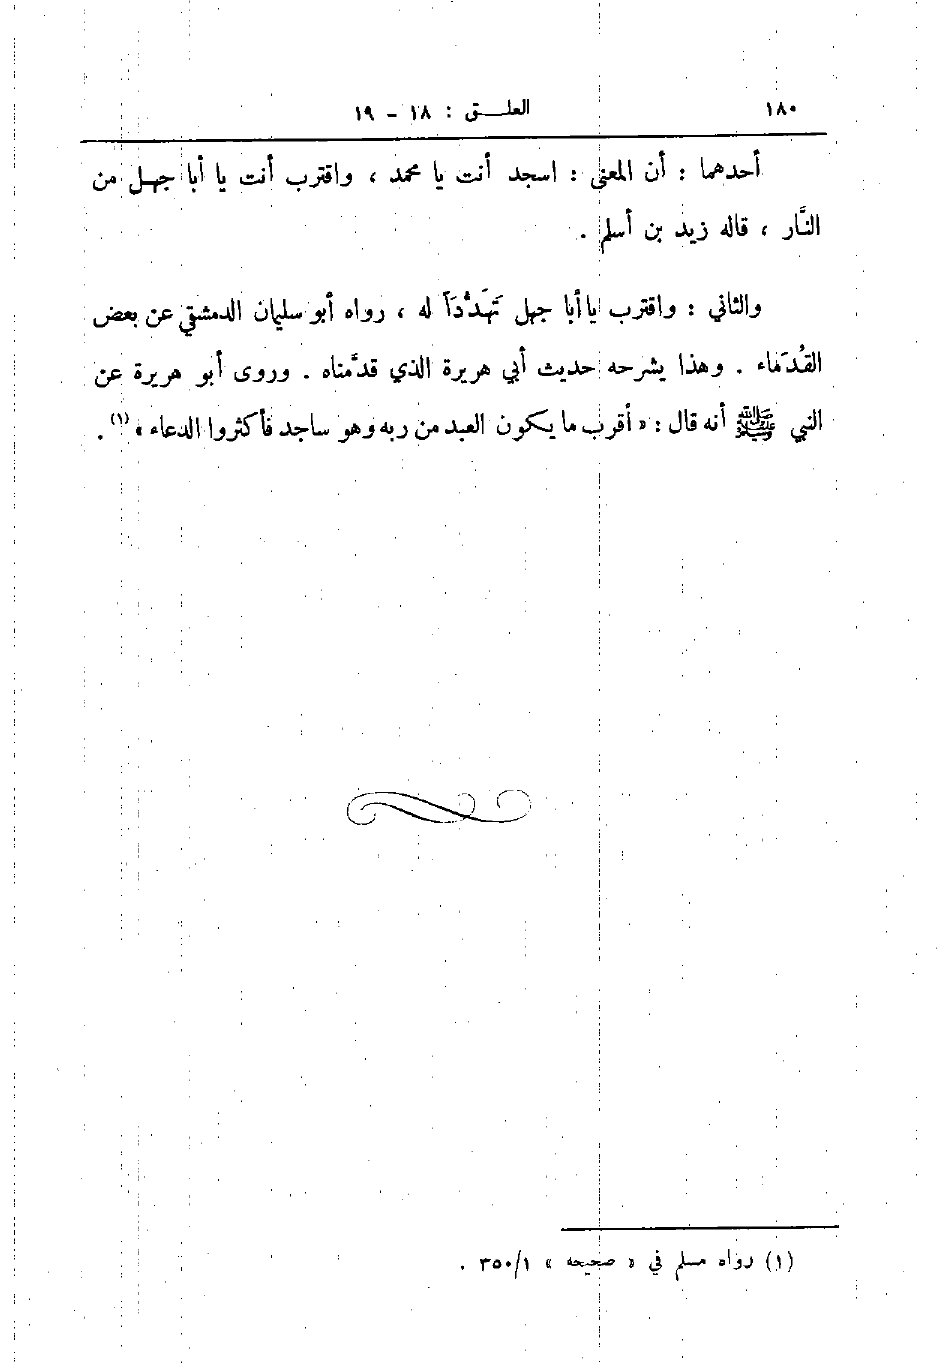 ١٨٠
العلـــق : ١٨ – ١٩
أحدهما : أن المعنى : اسجد أنت يا محمد ، واقترب أنت يا أبا جهـل من
النَّار ، قاله زيد بن أسلم .
والثاني : واقترب يا أبا جهل تَهَدُّدَاً له ، رواه أبو سليمان الدمشقي عن بعض
القُدَمَاء . وهذا يشرحه حديث أبي هريرة الذي قدَّمناه . وروى أبو هريرة عن
النبي ﷺ أنه قال : « أقرب ما يكون العبد من ربه وهو ساجد فأكثروا الدعاء » (١) .
(١) رواه مسلم في « صحيحه » ٣٥٠/١ .